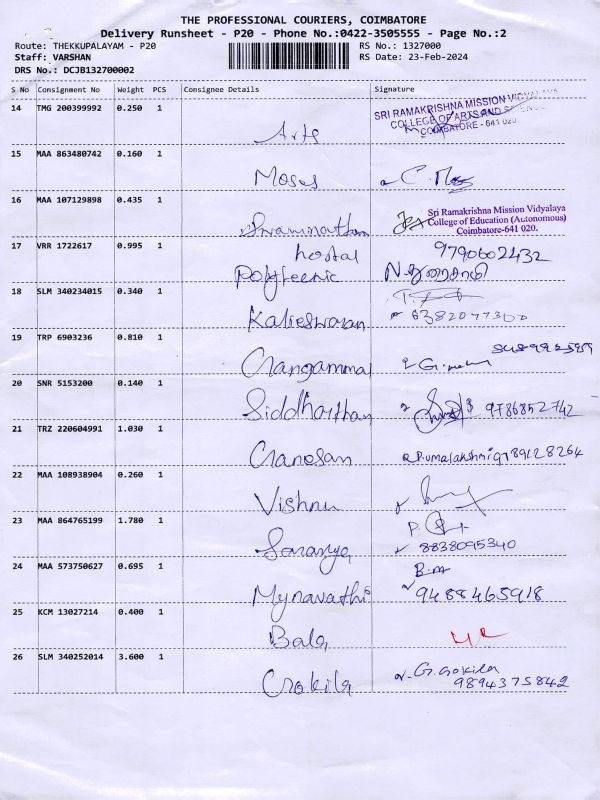 THE PROFESSIONAL COURIERS, COIMBATORE
Delivery Runsheet - P20 - Phone No.:0422-3505555 - Page No.:2
Route: THEKKUPALAYAM - P20 RS No.: 1327000
Staff: VARSHAN RS Date: 23-Feb-2024
DRS No.: DCJB132700002
S No Consignment No Weight PCS Consignee Details Signature
14 TMG 200399992 0.250 1 Arts SRI RAMAKRISHNA MISSION VIDYALAYA
COLLEGE OF ARTS AND SCIENCE
COIMBATORE - 641 020.
15 MAA 863480742 0.160 1 Moses
16 MAA 107129898 0.435 1 Swaminathan Sri Ramakrishna Mission Vidyalaya
College of Education (Autonomous)
Coimbatore-641 020.
17 VRR 1722617 0.995 1 hostal 9790602432
Polyteenic
18 SLM 340234015 0.340 1 Kalieswaran
19 TRP 6903236 0.810 1 Gangammal
20 SNR 5153200 0.140 1 Siddharthan 9786852742
21 TRZ 220604991 1.030 1 Ganesan R.P.umalakshmi 9789128264
22 MAA 108938904 0.260 1 Vishnu
23 MAA 864765199 1.780 1 Saranya 8838095340
24 MAA 573750627 0.695 1 Mynavathi 9488465918
25 KCM 13027214 0.400 1 Bala
26 SLM 340252014 3.600 1 Gokila G.Gokila
9894375842